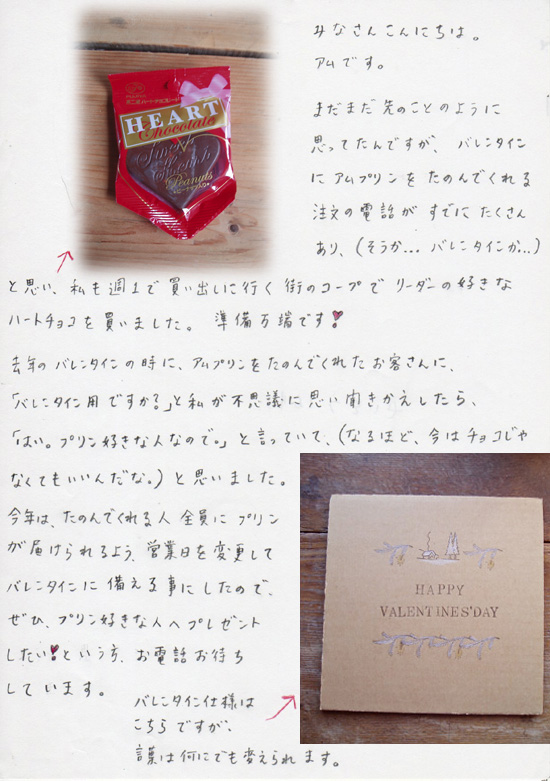 みなさんこんにちは。
アムです。
まだまだ先のことのように
思ってたんですが、バレンタイン
にアムプリンをたのんでくれる
注文の電話がすでにたくさん
あり、(そうか… バレンタインか…)
と思い、私も週1で買い出しに行く街のコープでリーダーの好きな
ハートチョコを買いました。準備万端です!
去年のバレンタインの時に、アムプリンをたのんでくれたお客さんに、
「バレンタイン用ですか?」と私が不思議に思い聞きかえしたら、
「はい。プリン好きな人なので。」と言っていて、(なるほど、今はチョコじゃ
なくてもいいんだな。)と思いました。
今年は、たのんでくれる人全員にプリン
が届けられるよう、営業日を変更して
バレンタインに備える事にしたので、
ぜひ、プリン好きな人へプレゼント
したい!という方、お電話お待ち
しています。
バレンタイン仕様は
こちらですが、
言葉は何にでも変えられます。
HEART
Chocolate
Peanuts
HAPPY
VALENTINES'DAY